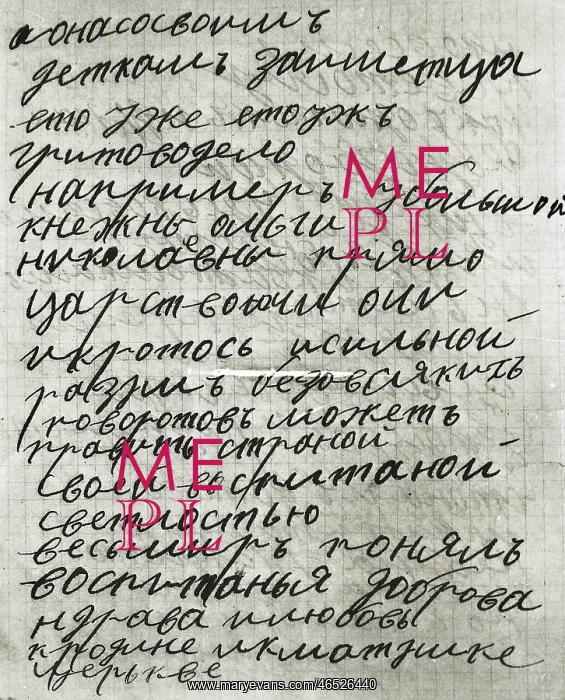 а онасосвоимъ
деткамъ заишетца
ето уже етоужъ
гритоводело
например ъ убольшой
кнежны ольги
николавны прямо
царствоючи они
икротось исильной
разумъ безовсякихъ
поворотовъ можетъ
править страной
своей воспитаной
светлостью
весьмиръ понялъ
воспитанья доброва
ндрава илюбовь
кродине икматушке
церькве
ME
PL
ME
PL
www.maryevans.com/46526440